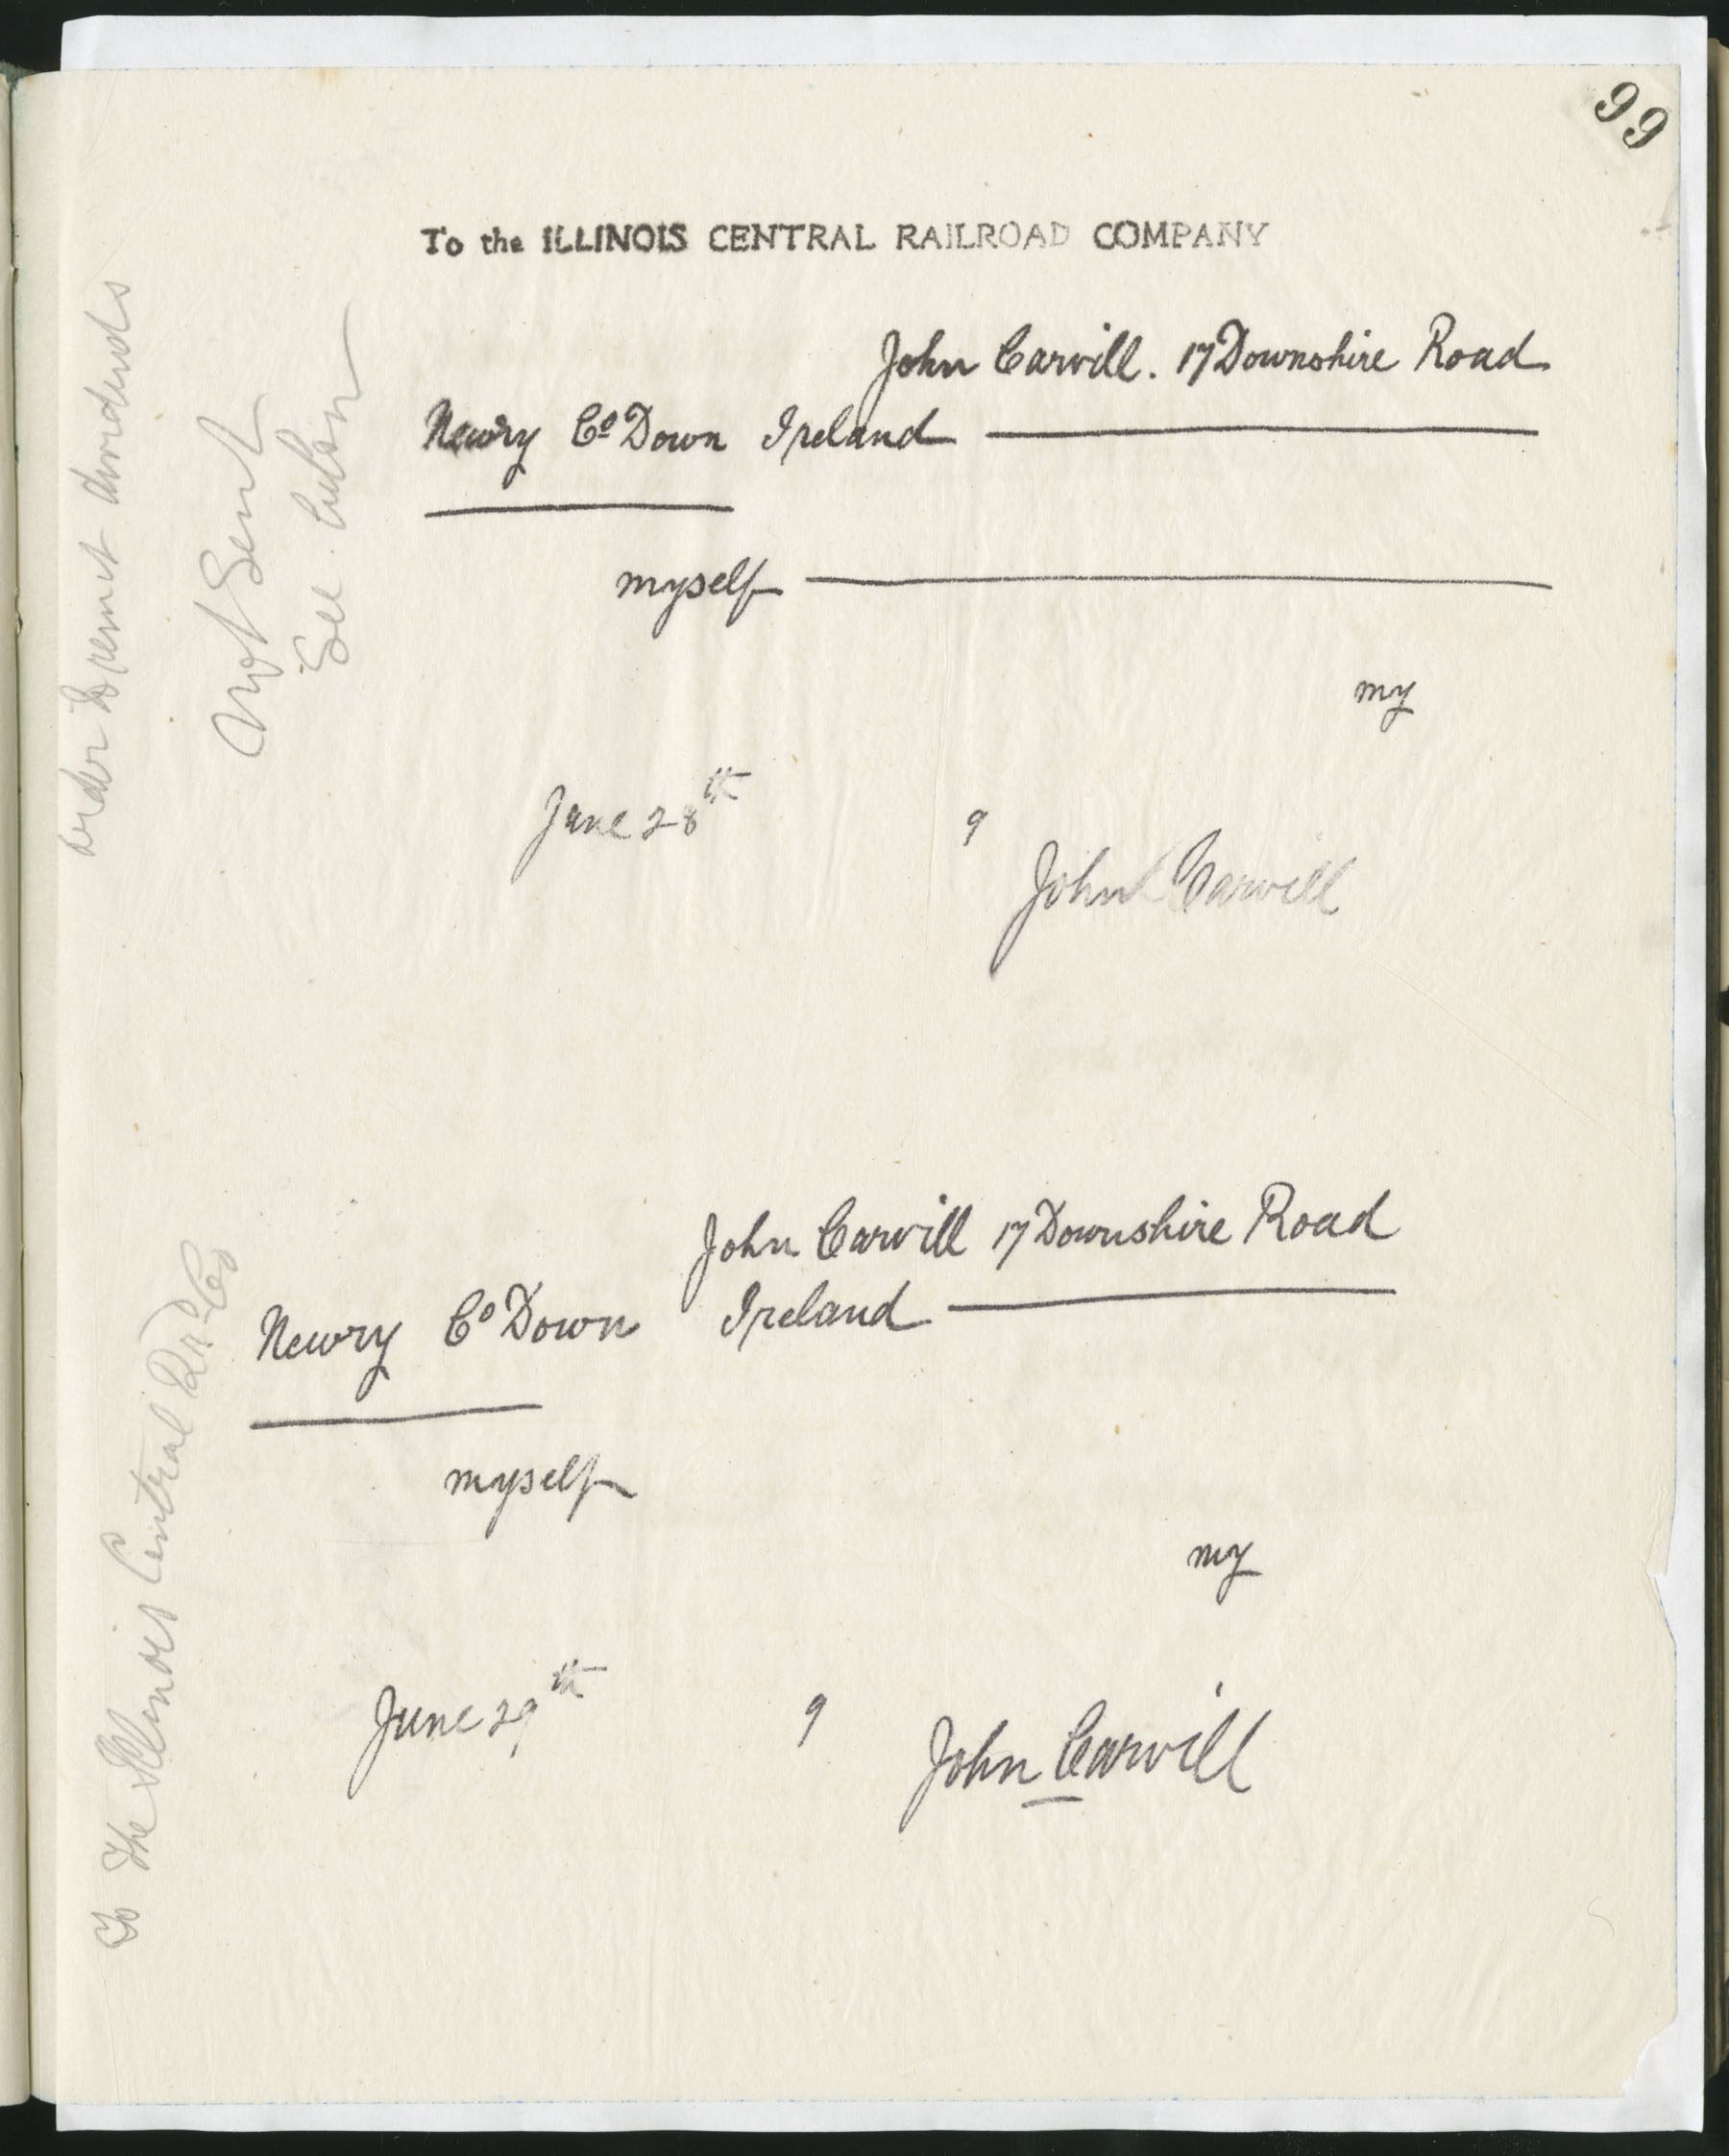 99
To the ILLINOIS CENTRAL RAILROAD COMPANY
John Carvill. 17 Downshire Road
Newry Co Down Ireland
myself
my
June 28th 9
John Carvill
John Carvill 17 Downshire Road
Newry Co Down Ireland
myself
my
June 29th 9
John Carvill
order to remit dividends
Not Sent
See
To The Illinois Central Rr Co